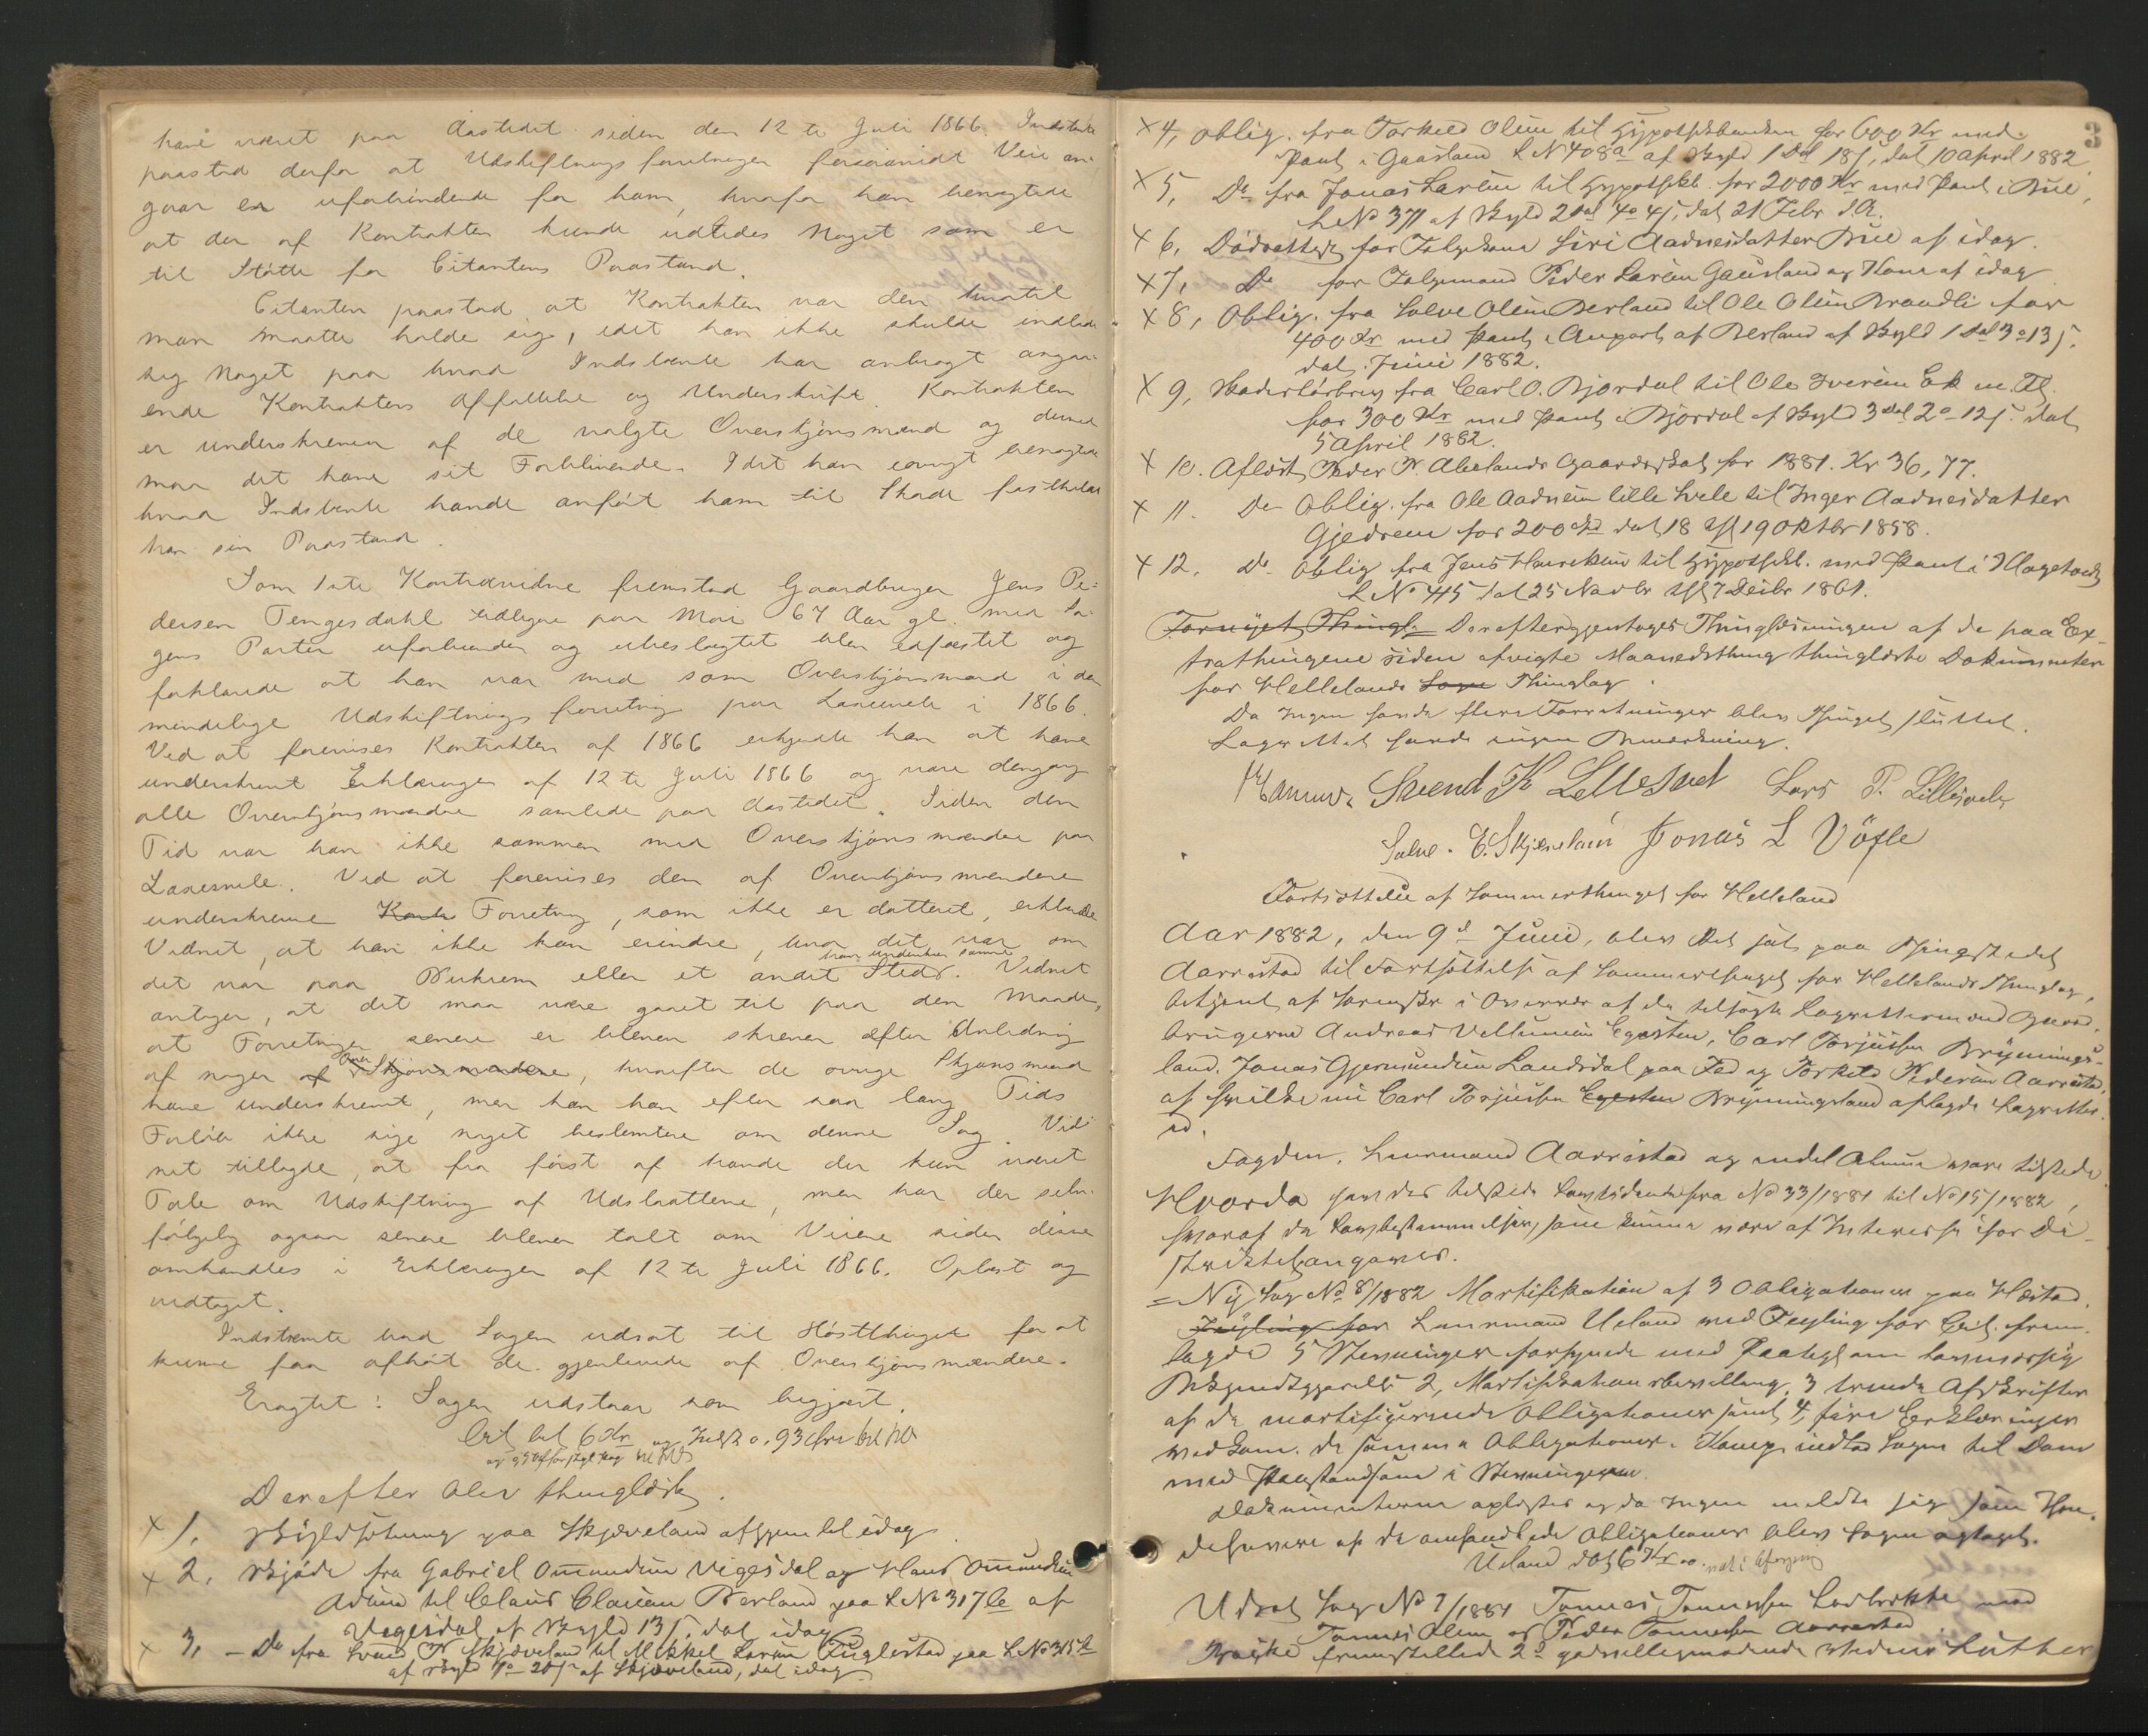 have været paa Aastedet siden den 12te Juli 1866. Indstevnte
paastod derfor at Udskiftningsforretningen forsaavidt Veie an-
gaar er uforbindende for ham, hvorfor han benegtede
at der af Kontrakten kunde udledes Noget som er
til Støtte for Citantens Paastand.
Citanten paastod at Kontrakten var den hvortil
man maatte holde sig, idet han ikke skulde indlade
sig Noget paa hvad Indstevnte har anbragt angaa-
ende Kontraktens Affattelse og Underskrift. Kontrakten
er underskreven af de valgte Overskjønsmænd og dermed
maa det have sit Forblivende. Idet han iøvrigt benegtede
hvad Indstevnte havde anført ham til Skade fastholdt
han sin Paastand.
Som 1ste Kontravidne fremstod Gaardbruger Jens Pe-
dersen Tengesdahl 67 Aar gl. med Sa-
gens Parter uforbunden og ubeslægtet blev edfæstet og
forklarede at han var med som Overskjønsmand i den
mindelige Udskiftningsforretning paa Laxesvele i 1866.
Ved at forevises Kontrakten af 1866 erkjendte han at have
underskrevet Erklæringen af 12te Juli 1866 og vare dengang
alle Overskjønsmændene samlede paa Aastedet. Siden den
Tid var han ikke sammen med Overskjønsmændene paa
Laxesvele. Ved at forevises den af Overskjønsmændene
underskrevne Kont Forretning, som ikke er datteret, erklærede
Vidnet, at han ikke kan erindre, hvor det var om
han underskrev samme
det var paa Birkrem eller et andet Sted. Vidnet
antager, at det maa være gaaet til paa den Maade,
at Forretningen senere er bleven skreven efter Anledning
af nogen af Overskjønsmændene, hvorefter de øvrige Skjønsmænd
have underskrevet, men han kan efter saa lang Tids
Forløb ikke sige noget bestemtere om denne Sag. Vid-
net tillagde, at fra først af havde der kun været
Tale om Udskiftning af Udslaatterne, men har der selv-
følgelig ogsaa senere bleven talt om Veiene siden disse
omhandles i Erklæringen af 12te Juli 1866. Oplæst og
vedtaget.
Indstevnte bad Sagen udsat til Høstthinget for at
kunne faa afhørt de gjenlevende af Overskjønsmændene.
Eragtet: Sagen udstaar som begjært.
Cit bet 6 Kr og Indst 0,93 Øre
Derefter blev thinglæst.
x 1. Skyldsætning paa Skjæveland afhjemlet idag
x 2. Skjøde fra Gabriel Omundsen Vigesdal og Hans Omundsen
Aduna til Claus Clausen Berland paa L No 317b af
Vegesdal af Skyld 13 s. dat idag
x 3. - Do fra Svend P Skjæveland til Mikkel Larsen Fuglestad paa L No 315
af Skyld 1 o 20 s af Skjæveland, dat idag
3
x 4, Oblig. fra Torkild Olsen til Hypothekbanken for 600 Kr med
Pant i Gaasland L N 408a af Skyld 1 Dal 18 s, dat 10 April 1882
x 5, Do fra Jonas Larsen til Hypothekb. for 2000 Kr med Pant i Bue,
L No 377 af Skyld 2 Dal 4 o 4 s, dat 21 Febr d.A.
x 6, Dødsattest for Folgekone Siri Aadnesdatter Bue af idag.
x 7, Do for Folgemand Peder Larsen Gausland og Kone af idag
x 8, Oblig. fra Salve Olsen Berland til Ole Olsen Braadli for
400 Kr med Pant i Anpart af Berland af Skyld 1 Dal 3 o 13 s.
dat Juni 1882.
x 9, Skadesløsbrev fra Carl O. Bjordal til Ole Iversen Eh m. Fl.
for 300 Kr med Pant i Bjordal af Skyld 3 Dal 2 o 12 s. dat
5 April 1882.
x 10. Aflæst Peder P. Abelands Gaardsskat for 1881. Kr 36,77.
x 11. Do Oblig. fra Ole Aadnesen lille Svele til Inger Aadnesdatter
Gjedrem for 200 Spd dat 18 tgl 19 Oktbr 1858.
x 12. Do Oblig fra Jens Hansken til Hypothekb. med Pant i Klagetvedt
L No 45 dat 25 Novbr tgl 7 Decbr 1861.
Fornyet Thingl. Derefter gjentoges Thinglæsningen af de paa Ex-
trathingene siden afvigte Maanedsthing thinglæste Dokumenter
for Hellelands Sogn Thinglag.
Da Ingen havde flere Forretninger blev Thinget sluttet.
Lagrettet havde ingen Bemærkning.
Svend K Lillesvel Lars P. Lillesvele
Salve. E. Skjævelan Jonas L Vøfle
Fortsættelse af Sommerthinget for Helleland
Aar 1882, den 9de Juni, blev Ret sat paa Thingstedet
Aarrestad til Fortsættelse af Sommerthinget for Hellelands Thinglag,
betjent af Sorenskr i Overvær af de tilsagte Lagrettesmænd Gaard-
brugerne Andreas Vellumsen Egesten, Carl Torjussen Brynnings-
land, Jonas Gjermundsen Landsdal paa Fod og Torkild Pedersen Aarrestad,
af hvilke nu Carl Torjussen Egesten Brynningsland aflagde Lagrettes-
ed.
Fogden, Lensmand Aarrestad og endel Almue vare tilstede.
Hvorda havdes tilstede Lovtidende fra No 33/1881 til No 15/1882,
hvoraf de Lovbestemmelser, som kunne være af Interesse for Di-
striktet angaves.
= Ny Sag No 8/1882 Mortifikation af 3 Obligationer paa Hæstad.
Feyling for Lensmand Ueland med Feyling for Cit. frem-
lagde 5 Stevninger forsynede med Paategn om lovmæssig
Bekjendtgjørelse 2, Mortifikationsbevilling, 3 trende Afskrifter
af de mortificerende Obligationer samt 4, fire Erklæringer
vedkom. de samme Obligationer. Komp. indlod Sagen til Dom
med Paastand som i Stevningerne.
Dokumenterne oplæstes og da Ingen meldte sig som Ihæn-
dehavere af de omhandlede Obligationer blev Sagen optaget.
Ueland dat 6 Kr
Udsat Sag No 7/1881 Tønnes Tønnessen Ladbrekke mod
Tønnes Olsen og Peder Tønnessen Aarrestad
fremstillede 2de godvilligmødende Vidner Luther